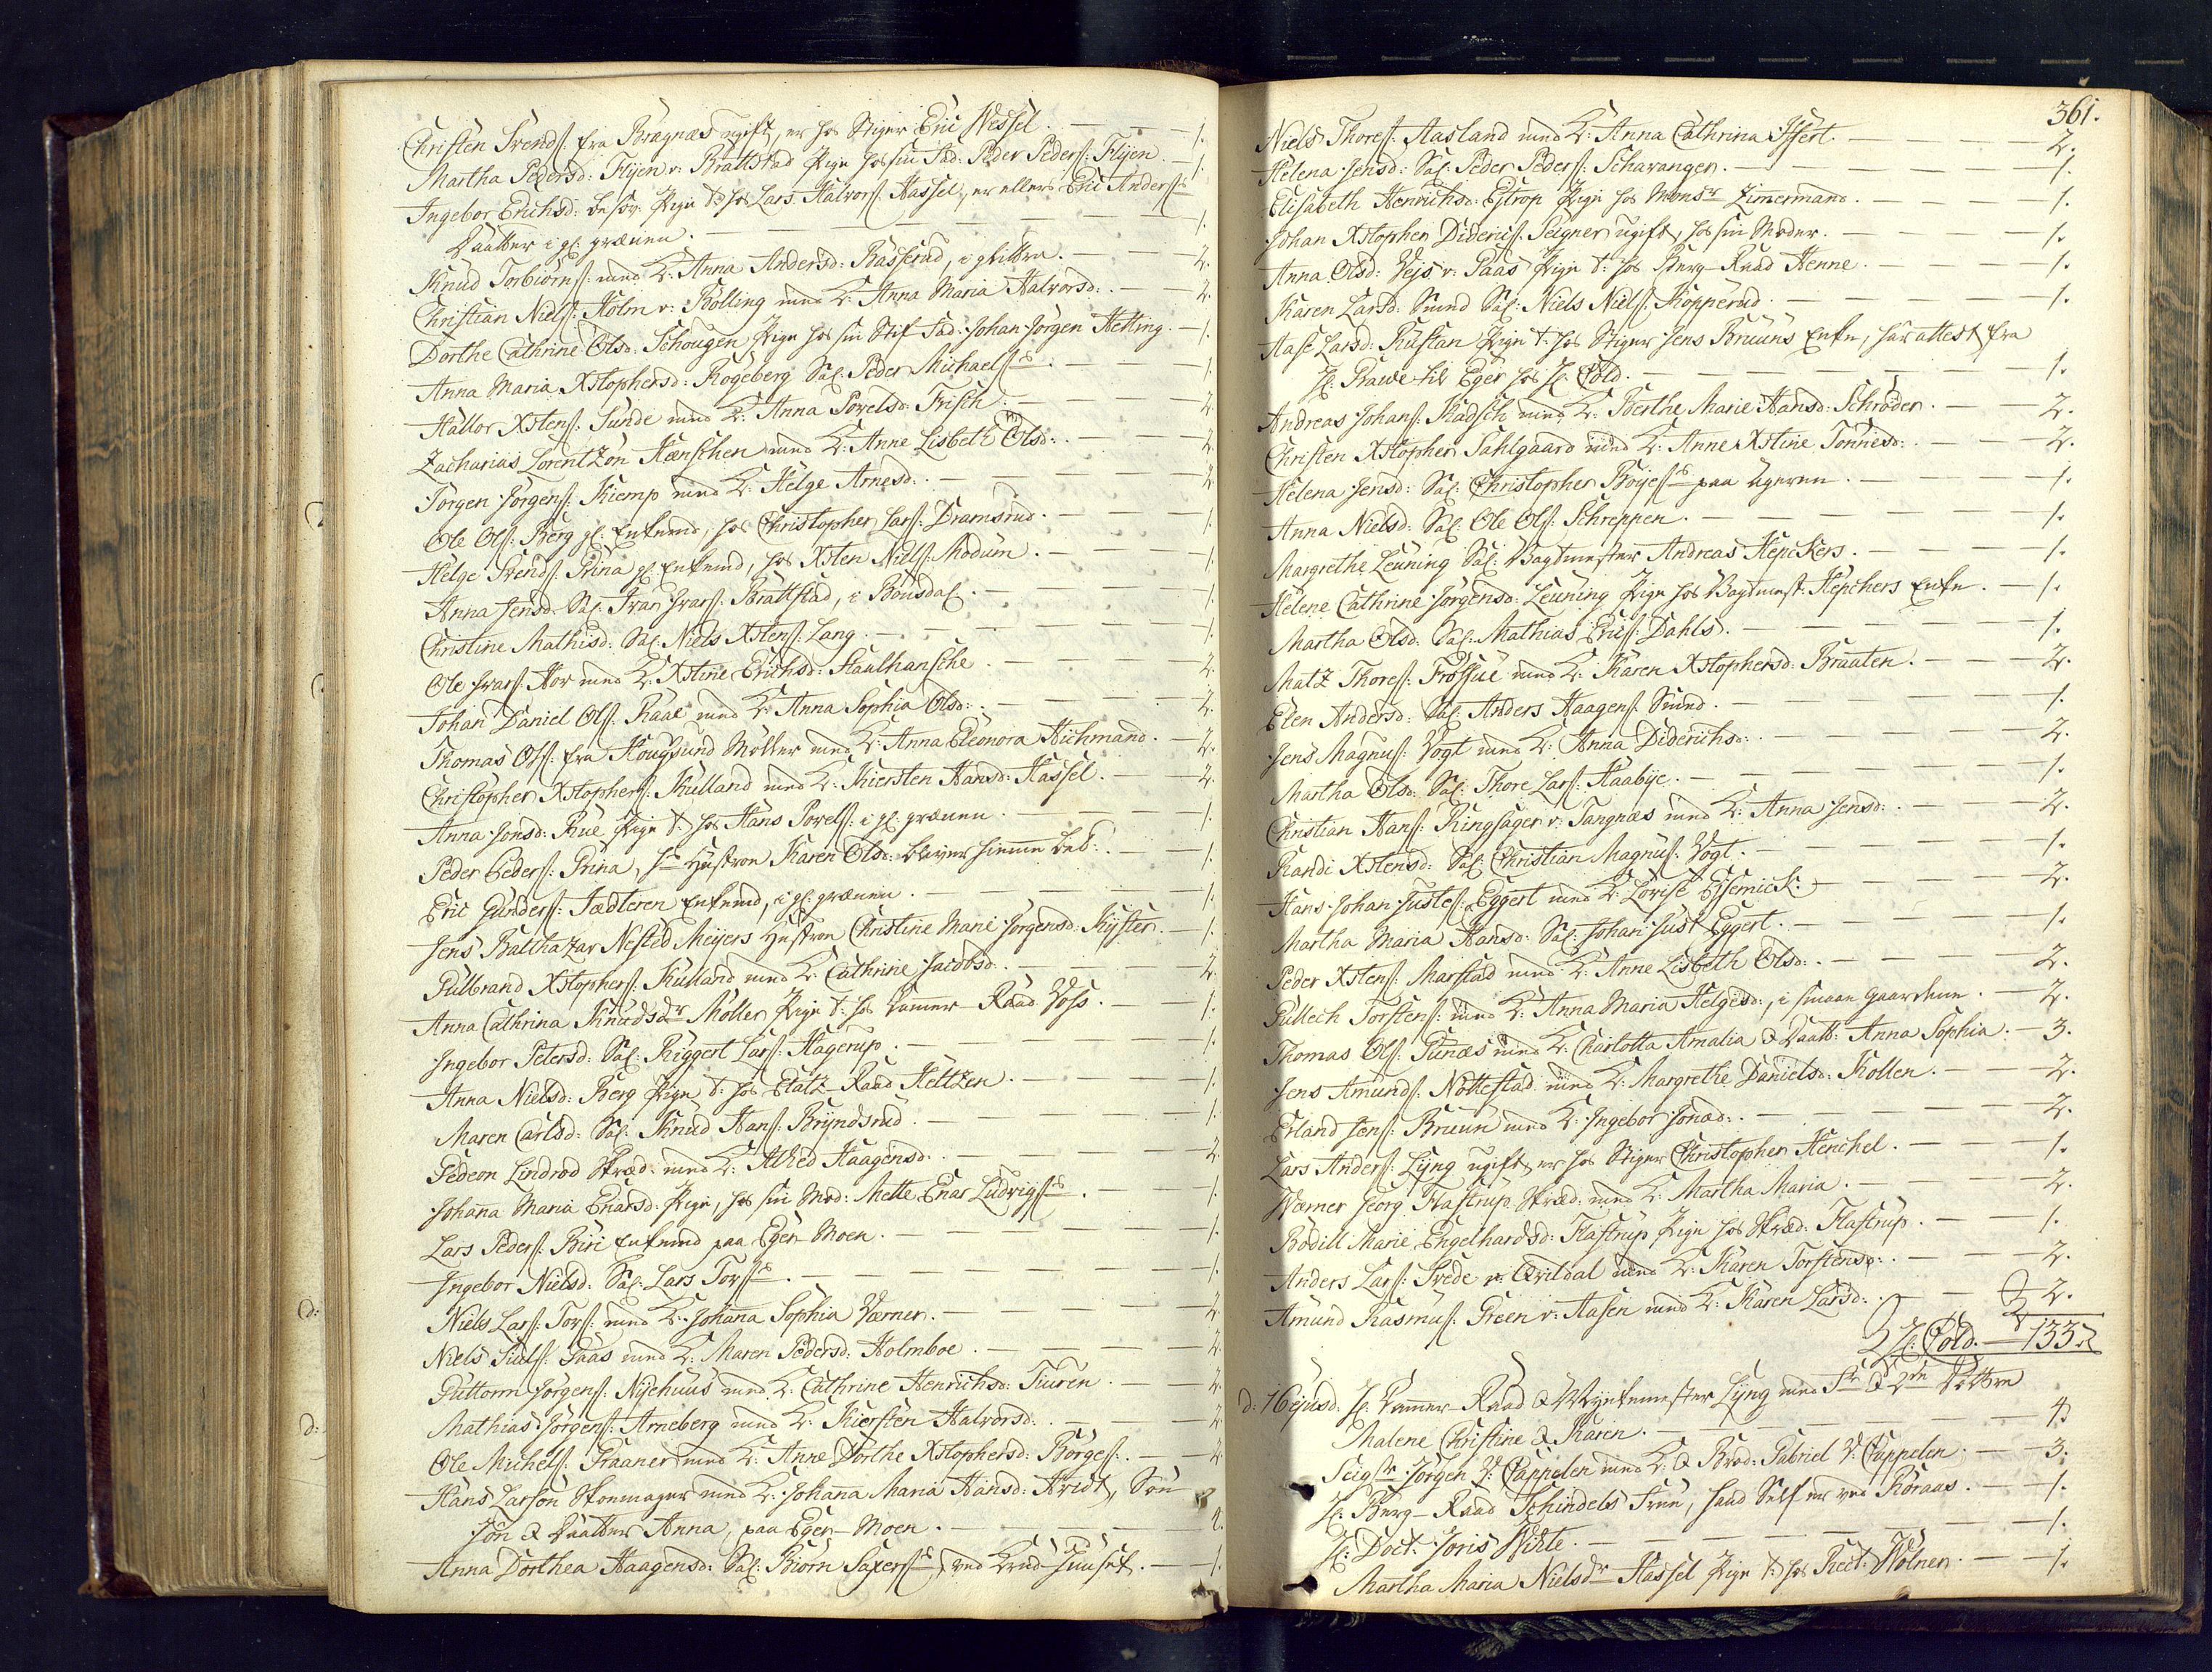 Christen Svends: fra Bragnæs ugift, er hos Stiger Eric Wessel. — 1.
Martha Pedersd: Flijen v: Brattstad Pige hos sin Fad: Peder Peders: Flijen. — 1.
Ingebor Erichsd: Pige t: hos Lars Halvors: Hassel, er ellers Eric Anders:
Daatter i gl: grænen. — 1.
Knud Torbiørns: med K: Anna Andersd: Rasserud, i — 2.
Christian Niels: Holm v: Bolling med K: Anna Maria Halvorsd: — 2.
Dorthe Cathrine Olsd: Schougen Pige hos sin Stif Fad: Johan Jørgen Hetting. — 1.
Anna Maria Xstophersd: Rogeberg Sal: Peder Michaels: — 1.
Hallor Xstens: Sunde med K: Anna Povelsd: Frisch. — 2.
Zacharias Lorentzon Hænschen med K: Anne Lisbeth Olsd: — 2.
Jørgen Jørgens: Kiemp med K: Helge Arnesd: — 2.
Ole Ols: Berg gl: Enkemd, hos Christopher Lars: Dramsrud. — 1.
Helge Svends: Prina gl: Enkemd, hos Xsten Niels: Modum. — 1.
Anna Jensd: Sal: Ivar Ivars: Brattstad, i Bonsdal. — 1.
Christine Mathisd: Sal: Niels Xstens: Lang. — 1.
Ole Ivars: Hov med K: Xstine Erichsd: Staulhansche. — 2.
Johan Daniel Ols: Raae med K: Anna Sophia Olsd: — 2.
Thomas Ols: fra Hougsund Møller med K: Anna Eleonora Hichmand. — 2.
Christopher Xstophers: Kulland med K: Kiersten Hansd: Hassel. — 2.
Anna Jonsd: Rue Pige t: hos Hans Povels: i gl: grænen. — 1.
Peder Peders: Prina, Hustroe Karen Olsd: bliver hiemme — 1.
Eric Gunders: Sædteren Enkemd, i gl: grænen. — 1.
Jens Balthazar Nested Meijers Hustroe Christine Marie Jørgensd: Kijster. — 1.
Gulbrand Xstophers: Kulland med K: Cathrine Jacobsd: — 2.
Anna Cathrina Knudsdr Møller Pige t: hos Camer-Raad Voss. — 1.
Ingebor Petersd: Sal: Riggert Lars: Hagerup. — 1.
Anna Nielsd: Berg Pige t: hos Etatz-Raad Heltzen. — 1.
Maren Carlsd: Sal: Knud Hans: Bryndsrud. — 1.
Gedeon Lindrod Skræd: med K: Alhed Haagensd: — 2.
Johanna Maria Enarsd: Pige, hos sin Mod: Mette Enar Ludvigs: — 1.
Lars Peders: Biri Enkemd paa Eger-Moen. — 1.
Ingebor Nielsd: Sal: Lars Tors: — 1.
Niels Lars: Tors: med K: Johanna Sophia Værner. — 2.
Niels Siuls: Paas med K: Maren Pedersd: Holmboe. — 2.
Guttorm Jørgens: Nijehuus med K: Cathrine Henrichsd: Tiuren. — 2.
Mathias Jørgens: Arneberg med K: Kiersten Halvorsd: — 2.
Ole Michels: Graaner med K: Anne Dorthe Xstophersd: Børges: — 2.
Hans Larson Skomager med K: Johanna Maria Hansd: Arvidt, Søn
Jon & Daatter Anna, paa Eger-Moen. — 4.
Anna Dorthea Haagensd: Sal: Biørn Saxers: ved Huuset. — 1.
361.
Niels Thores: Aasland med K: Anna Cathrina Issert. — 2.
Helena Jensd: Sal: Peder Peders: Schavangen. — 1.
Elisabeth Henrichsd: Estrop Pige hos Monsr Zimermand. — 1.
Johan Xstopher Diderics: Seigner ugift, hos sin Moder. — 1.
Anna Olsd: Vejs v: Paas Pige t: hos Berg-Raad Henne. — 1.
Karen Larsd: Smed Sal: Niels Niels: Kopperud. — 1.
Aase Larsd: Rustan Pige t: hos Stiger Jens Bruuns Enke, har attest fra
H: Rawe til Eger hos H: Cold. — 1.
Andreas Johans: Kadsch med K: Berthe Marie Hansd: Schrøder. — 2.
Christen Xstopher Sahlgaard med K: Anne Xstine Tønnesd: — 2.
Helena Jensd: Sal: Christopher Bøijes: paa Ageren. — 1.
Anna Nielsd: Sal: Ole Ols: Schreppen. — 1.
Margrethe Leuning Sal: Vagtmester Andreas Hepckers. — 1.
Helene Cathrine Jørgensd: Leuning Pige hos Vagtmest: Hepckers Enke. — 1.
Martha Olsd: Sal: Mathias Erics: Dahls. — 1.
Matz Thores: Frossue med K: Karen Xstophersd: Braaten. — 2.
Elen Andersd: Sal: Anders Haagens: Smed. — 1.
Jens Magnus: Vogt med K: Anna Diderichsd: — 2.
Martha Olsd: Sal: Thore Lars: Haabije. — 1.
Christian Hans: Ringsager v: Tangnæs med K: Anna Jensd: — 2.
Randi Xstensd: Sal: Christian Magnus: Vogt. — 1.
Hans Johan Justes: Eggert med K: Lovise Essemick. — 2.
Martha Maria Hansd: Sal: Johan Just Eggert. — 1.
Peder Xstens: Marstad med K: Anne Lisbeth Olsd: — 2.
Gullech Torstens: med K: Anna Maria Helgesd:, i smaae Gaardene. — 2.
Thomas Ols: Punæs med K: Charlotta Amalia & Daatt: Anna Sophia. — 3.
Jens Amunds: Nottestad med K: Margrethe Danielsd: Kollen. — 2.
Erland Jens: Bruun med K: Ingebor Jonæd: — 2.
Lars Anders: Lijng ugift er hos Stiger Christopher Henchel. — 1.
Wærner Georg Flastrup Skræd: med K: Martha Maria. — 2.
Bodill Marie Engelhardsd: Flastrup Pige hos Skræd: Flastrup. — 1.
Anders Lars: Svede v: Qvildal med K: Karen Torstensd: — 2.
Amund Rasmus: Green v: Aasen med K: Karen Larsd: — 2.
H: Cold. — 133
d: 16 ejusd. H: Cammer-Raad & Myntemester Lijng med & Døttre
Malene Christine & Karen. — 4
Seigr Jørgen V: Cappelen med K: & Brod: Gabriel V: Cappelen. — 3.
H: Berg-Raad Schindels Frue, hand Self er ved Røraas. — 1.
H: Doct: Joris Wihte. — 1.
Martha Maria Nielsdr Hassel Pige t: hos Rect: Wolner. — 1.